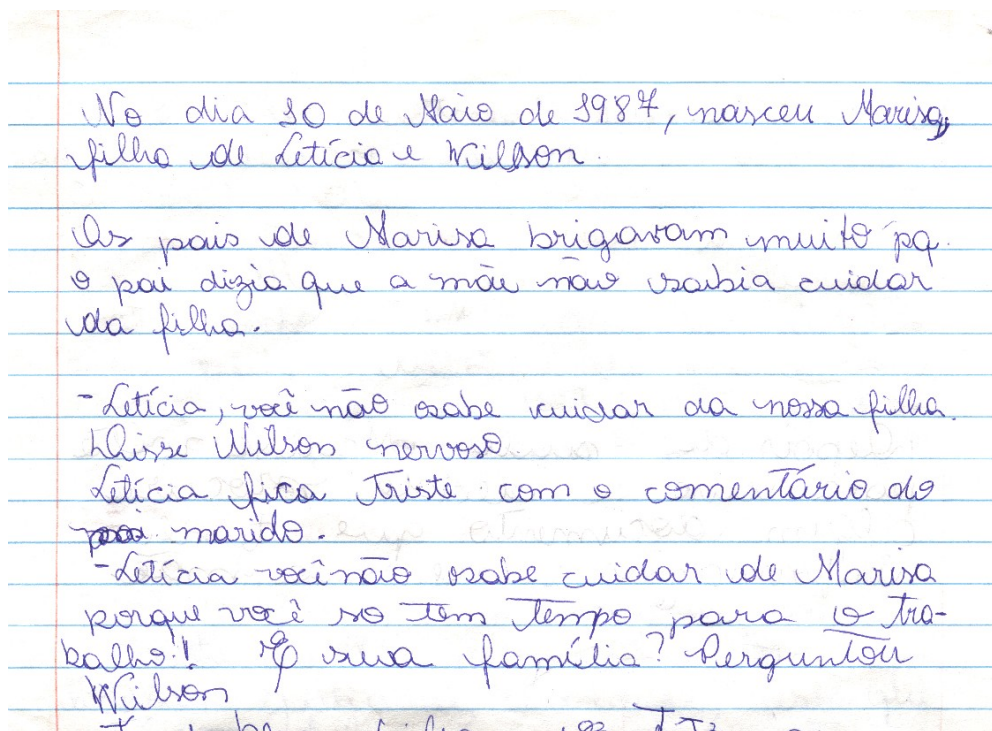 No dia 10 de Maio de 1987, nasceu Marisa,
filha de Letícia e Wilson.
Os pais de Marisa brigavam muito pq
o pai dizia que a mãe não sabia cuidar
da filha.
- Letícia, você não sabe cuidar da nossa filha.
Disse Wilson nervoso
Letícia fica triste com o comentário do
marido.
- Letícia você não sabe cuidar de Marisa
porque você so tem tempo para o tra-
balho! E sua família? Perguntou
Wilson